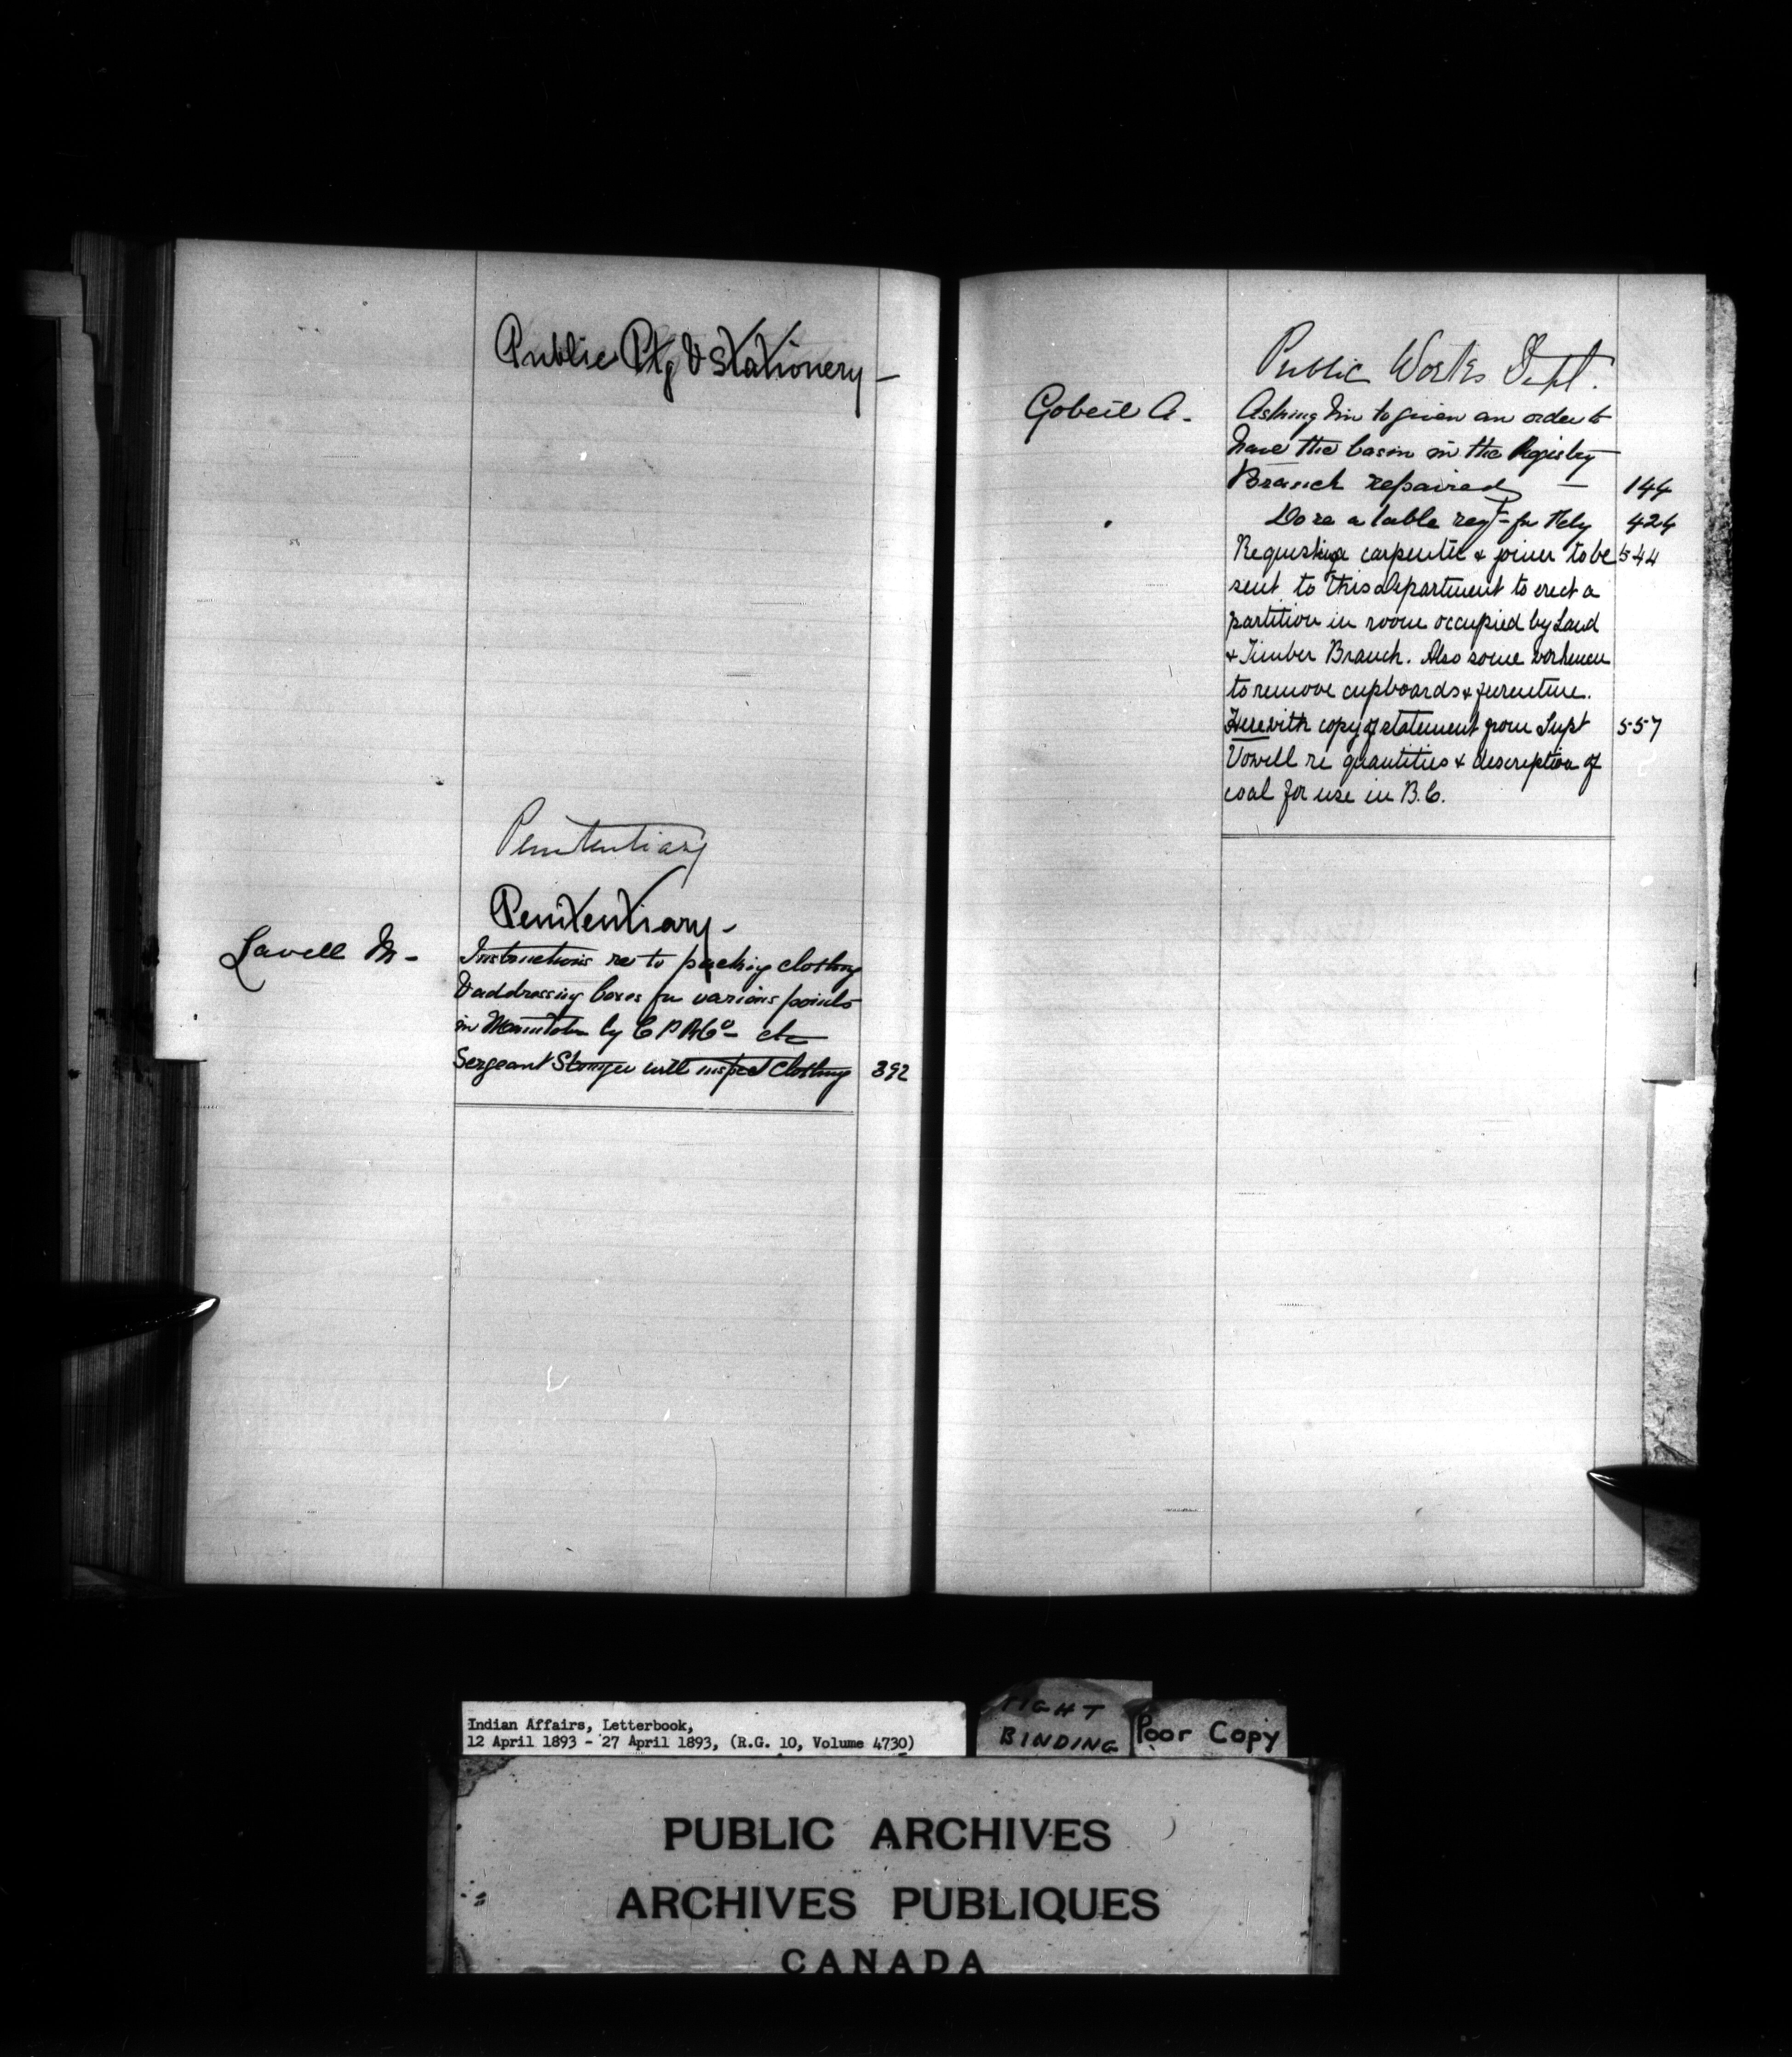 Public Ptg & Stationery -
Penitentiary
Penitentiary -
Lavell M - Instructions re to packing clothing
& addressing boxes for various points
in Manitoba by C P R Co - etc
Sergeant will inspect clothing 392
Public Works Dept.
Gobeil A. - Asking him to given an order to
have the basin in the Registry
Branch repaired - 144
Do re a table reqd for 424
Requesting a carpenter & joiner to be 544
sent to this Department to erect a
partition in room occupied by Land
& Timber Branch. Also some workmen
to remove cupboards & furniture.
Herewith copy of statement from Supt 557
Vowell re quantities & description of
coal for use in B.C.
Indian Affairs, Letterbook,
12 April 1893 - 27 April 1893, (R.G. 10, Volume 4730)
TIGHT
BINDING
Poor Copy
PUBLIC ARCHIVES
ARCHIVES PUBLIQUES
CANADA